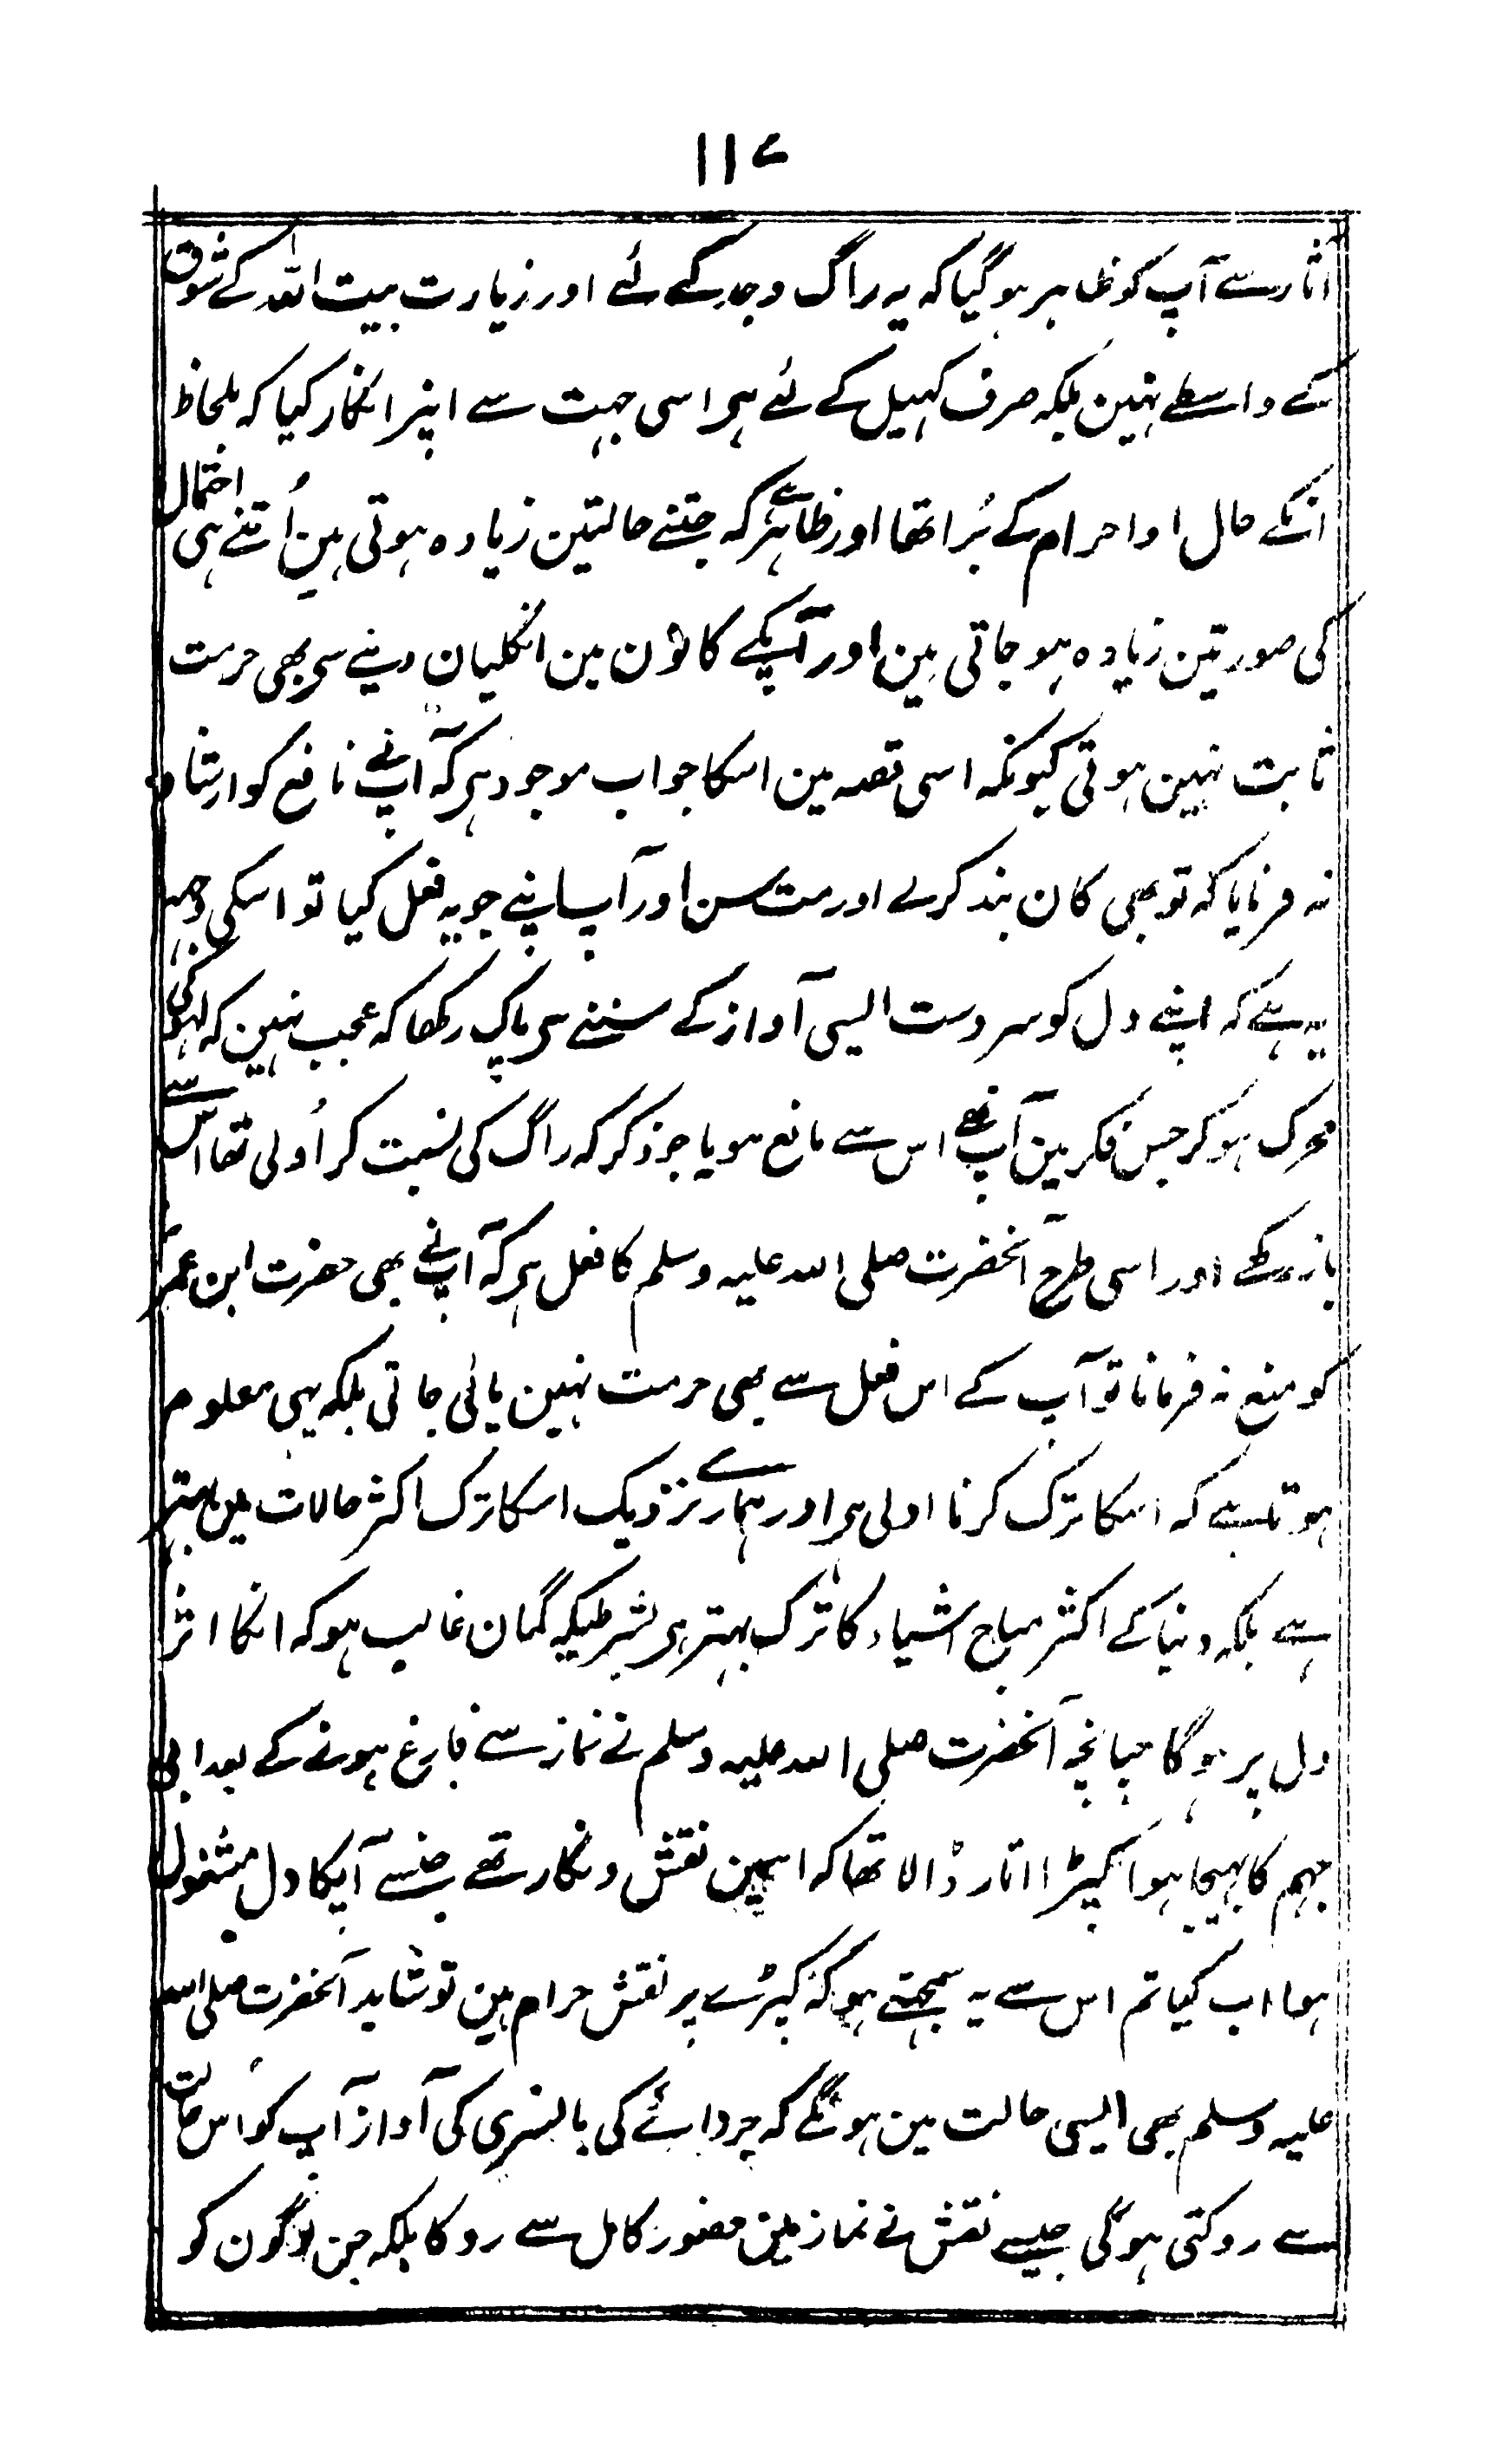 ۱۱۷
آثار سے آپ کو ظاہر ہو گیا کہ یہ راگ وجد کے لئے اور زیارت بیت اللہ کے شوق
کے واسطے نہین بلکہ صرف کہیل کے لئے ہی اسی جہت سے اپنر انکار کیا کہ بلحاظ
انکے حال اوا حرام کے بُرا تھا اور ظاہر ہے کہ جتنے حالتین زیادہ ہوتی ہین اُتنے ہی احتمال
کی صورتین زیادہ ہو جاتی ہین اور آپکے کانون مین انگلیان دینے سی بھی حرمت
ثابت نہین ہوتی کیونکہ اسی قصہ مین اسکا جواب موجود ہی کہ آپنے نافع کو ارشاد
نہ فرمایا کہ تو بھی کان بند کرلے اور مت سن اور آپ اپنے جو یہ فعل کیا تو اسکی وجہ
یہ ہے کہ اپنے دل کو سردست ایسی آواز کے سننے سی پاک رکھا کہ عجب نہین کہ لہو کی
محرک ہو کر جس فکر مین آپ تھے اس سے مانع ہو یا جو ذکر کہ راگ کی نسبت کر اُولی تھا اس سے
باز رکھے اور اسی طرح آنحضرت صلی اللہ علیہ وسلم کا فعل ہی کہ آپنے بھی حضرت ابن عمر
کو منع نہ فرمانا تو آپ کے اس فعل سے بھی حرمت نہین پائی جاتی بلکہ یہی معلوم
ہوتا ہے کہ اسکا ترک کرنا اولی ہی اور ہمارے نزدیک اسکا ترک اکثر حالات مین بہتر
ہے بلکہ دنیا کے اکثر مباح اشیاء کا ترک بہتر ہی بشرطیکہ گمان غالب ہو کہ انکا اثر
دل پر ہوگا چنانچہ آنحضرت صلی اللہ علیہ وسلم نے نماز سے فارغ ہونے کے بعد ابی
جہم کا بہیجا ہوا کپڑا اتار ڈالا تھا کہ اسمین نقش ونگار تھے جنسے آپکا دل مشغول
ہوا اب کیا تم اس سے یہ سمجہتے ہو کہ کپڑے پر نقش حرام ہین تو شاید آنحضرت صلی اللہ
علیہ وسلم بھی ایسی حالت مین ہونگے کہ چرواہے کی بانسری کی آواز آپ کو اس حالت
سے روکتی ہوگی جیسے نقش نے نماز مین حضور کامل سے روکا بلکہ جن لوگون کو